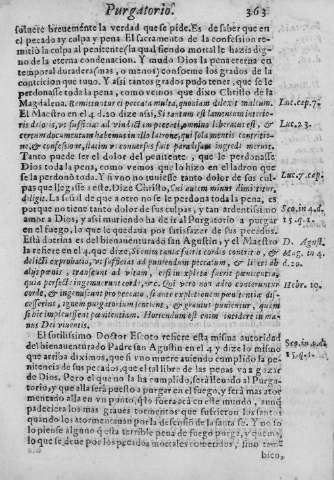 Purgatorio. 363
soluere breuemente la verdad que se pide. Es de saber que en
el pecado ay culpa y pena. El sacramento de la confession re-
mitio la culpa al penitente (la qual siendo mortal le hazia dig-
no de la eterna condenacion. Y mudo Dios la pena eterna en
temporal duradera (mas, o menos) conforme los grados de la
contricion que tuuo. Y assi tantos grados pudo tener, que se le
perdonasse toda la pena, como vemos que dixo Christo de la
Magdalena. Remittuntur ei peccata multa, quoniam dilexit multum.
Luc. cap. 7.
El Maestro en el 4. d. 20 dize assi, Si tantum est lamentum interio-
ris doloris, vt sufficiat ad vindictam peccati, omnino liberatus est, &
Luc. 23.
certum documentum habemus in illo latrone, qui sola mentis contritio-
ne, & confessione, statim conuersus fuit paradisum ingredi meruit.
Tanto puede ser el dolor del penitente, que le perdonasse
Dios toda la pena, como vemos que lo hizo en el ladron que
se la perdonò toda. Y si vno no tuuiesse tanto dolor de sus cul
pas que llegasse a este. Dize Christo, Cui autem minus dimittitur,
Luc. 7. cap.
diligit. La señal de que a otro no se le perdona toda la pena, es
porque no tiene tanto dolor de sus culpas, y tan ardentissimo
Sco. in 4. d.
amor a Dios, y assi muriendo ha de ir al Purgatorio a purgar
15. q. 1.
en el fuego, lo que le quedaua por satisfazer de sus pecados.
Està dotrina es del bienauenturado san Agustin, y el Maestro
D. Agust.
la refiere en el 4. que dize, Si enim tanta fuerit cordis contritio, &
Mag. in 4.
delicti exprobatio, vt sufficiat ad puniendum peccatum, & liberi ab
d. 20.
alijs pœnis, transeunt ad vitam, etsi non expleta fuerit pœnitentia,
quia perfectè ingemuerunt corde, &c. Qui pero non adeo conteruntur
Hebr. 10.
corde, & ingemiscunt pro peccato, si ante expletionem pœnitentiæ di-
scesserint, ignem purgatorium sentient, & grauius punientur, quàm
si hic impleuissent pœnitentiam. Horrendum est enim incidere in ma-
nus Dei viuentis.
El sotilissimo Doctor Escoto refiere esta misma autoridad
Sco. in 4. d.
del bienauenturado Padre san Agustin en el 4. y dize lo mismo
15. q. 1.
que arriba diximos, que si vno muere auiendo cumplido la pe-
nitencia de sus pecados, que el tal libre de las penas va a gozar
de Dios. Pero el que no la ha cumplido, serà lleuado al Purga-
torio, y que alla serà puesto a purgar en el fuego, y serà mas ator
mentado alla en vn punto, que lo fuera acà en este mundo, aunque
padeciera los mas graues tormentos que sufrieron los santos
quando los atormentauan por la defensió de la santa fe. Y no so
lo piense alguno que esta terrible pena de fuego purga, y quema
lo que se deue por los pecados mortales cometidos, sino tam
bien